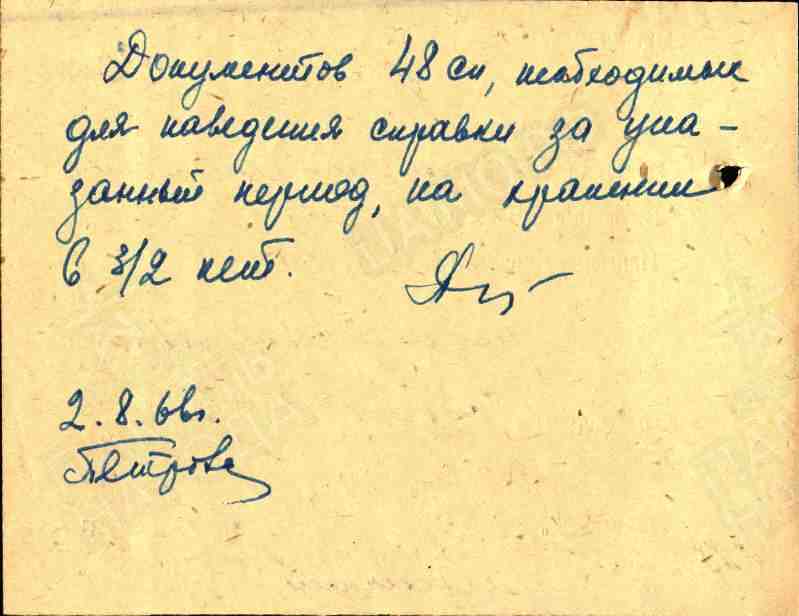 Документов 48 сп, необходимых
для наведения справки за ука-
занный период, на хранении
в з/2 нет.
2.8.66г.
Петрова